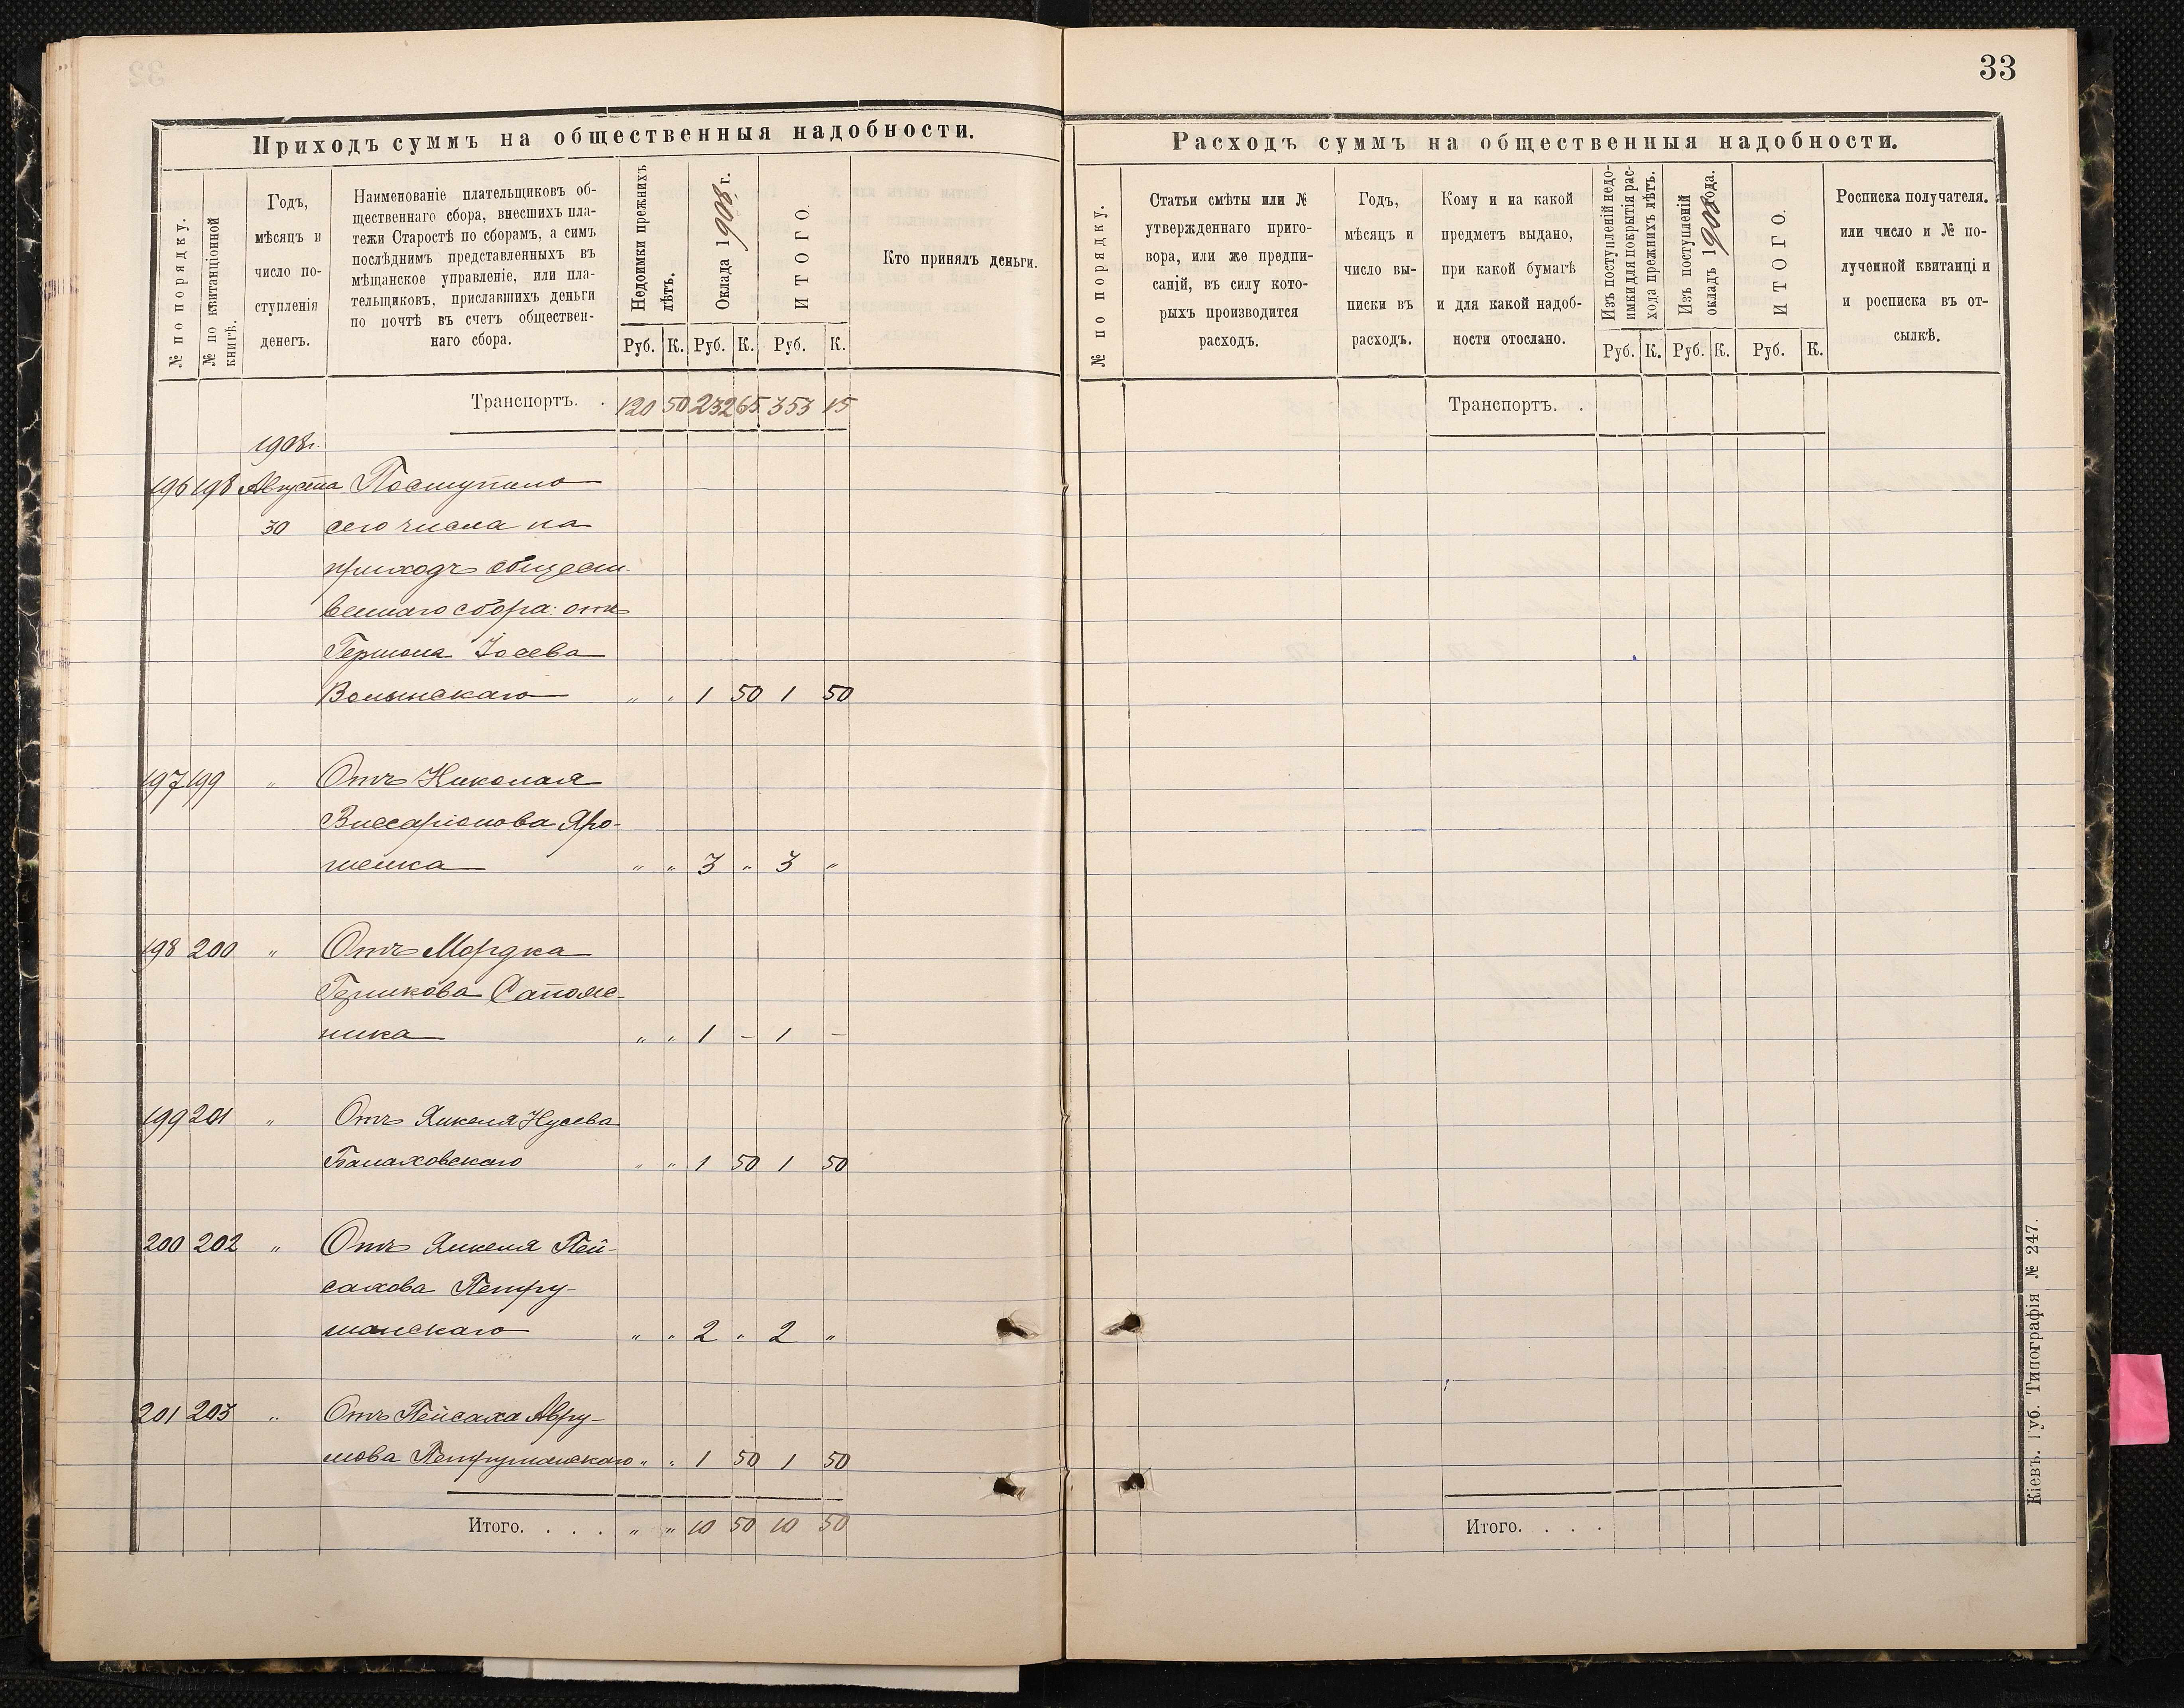 33
Приходъ суммъ на общественныя надобности.
№ по порядку.
№ по квитанціонной книгѣ.
Годъ,
мѣсяцъ и
число по-
ступленія
денегъ.
Наименованіе плательщиковъ об-
щественнаго сбора, внесшихъ пла-
тежи Старостѣ по сборамъ, а симъ
послѣднимъ представленныхъ въ
мѣщанское управленіе, или пла-
тельщиковъ, приславшихъ деньги
по почтѣ въ счетъ обществен-
наго сбора.
Недоимки прежнихъ
лѣтъ.
Оклада 1908 г.
ИТОГО.
Кто принялъ деньги.
Руб. К. Руб. К. Руб. К.
Транспортъ. . 120 50 232 65 353 15
1908 г.
196 198 Августа Поступило
30 сего числа на
приходъ общест-
веннаго сбора: отъ
Гершона Іосева
Волынскаго „ „ 1 50 1 50
197 199 „ Отъ Николая
Виссаріонова Яро-
шенка „ „ 3 „ 3 „
198 200 „ Отъ Мордка
Гершкова Сапож-
ника „ „ 1 — 1 —
199 201 „ Отъ Янкеля Нусева
Балаховскаго „ „ 1 50 1 50
200 202 „ Отъ Янкеля Пей-
сахова Петру-
шанскаго „ „ 2 „ 2 „
201 203 „ Отъ Пейсаха Авру-
мова Петрушанскаго „ „ 1 50 1 50
Итого. . . . „ „ 10 50 10 50
Расходъ суммъ на общественныя надобности.
№ по порядку.
Статьи смѣты или №
утвержденнаго приго-
вора, или же предпи-
саній, въ силу кото-
рыхъ производится
расходъ.
Годъ,
мѣсяцъ и
число вы-
писки въ
расходъ.
Кому и на какой
предметъ выдано,
при какой бумагѣ
и для какой надоб-
ности отослано.
Изъ поступленій недо-
имки для покрытія рас-
хода прежнихъ лѣтъ.
Изъ поступленій
окладъ 1908 года.
ИТОГО.
Росписка получателя.
или число и № по-
лученной квитанціи
и росписка въ от-
сылкѣ.
Руб. К. Руб. К. Руб. К.
Транспортъ. .
Итого. . . .
Кіевъ. Губ. Типографія № 247.